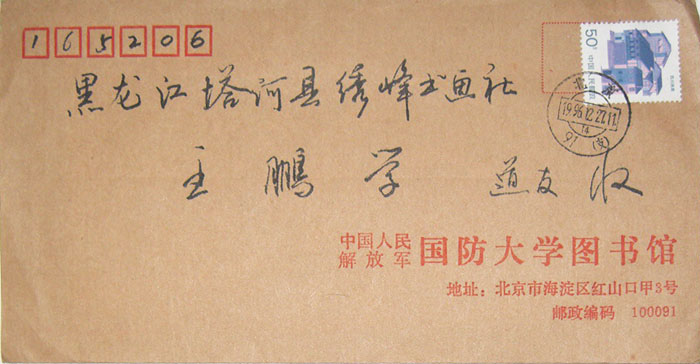 165206
50分
中国人民邮政
北京
1996.12.22.11
14
黑龙江塔河县绣峰书画社
王鹏学 道友 收
中国人民
解放军 国防大学图书馆
地址：北京市海淀区红山口甲3号
邮政编码 100091